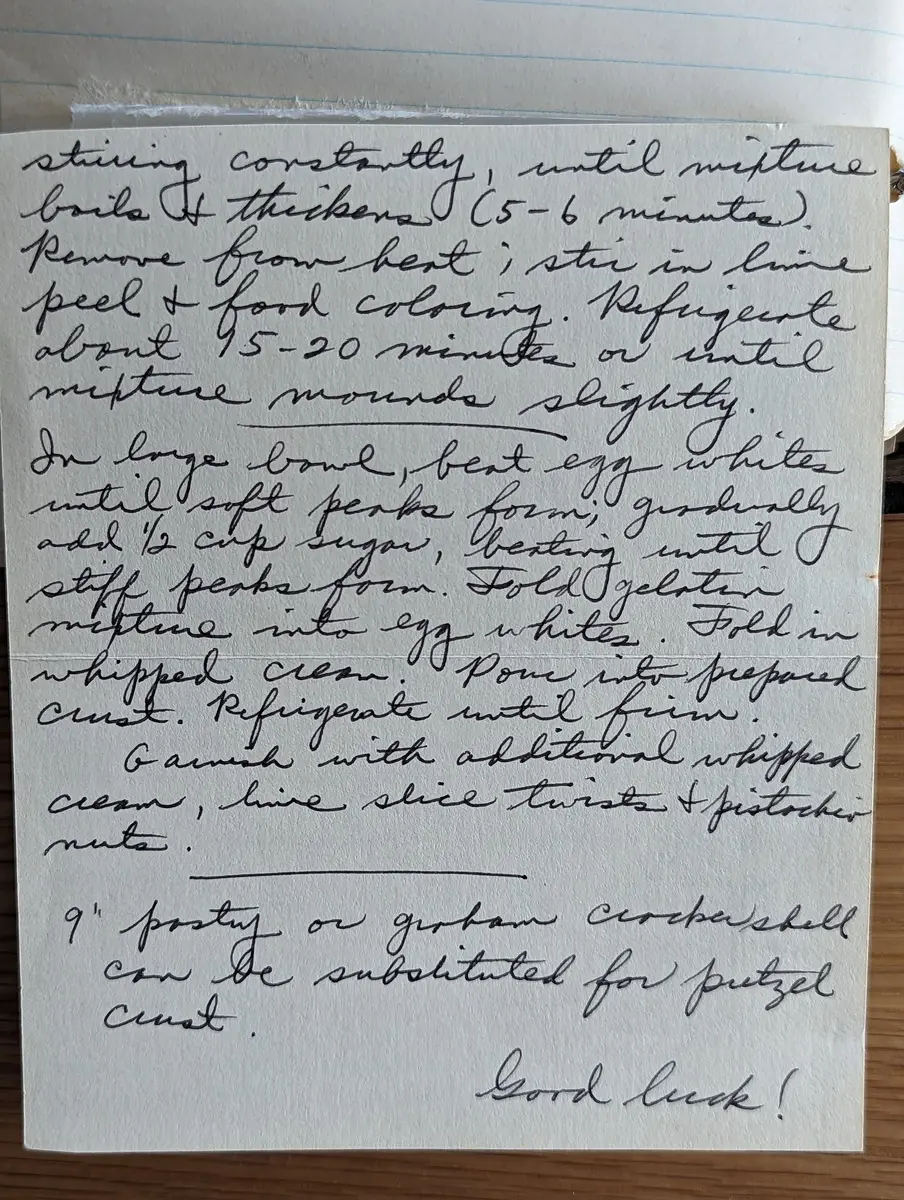 stirring constantly, until mixture
boils & thickens (5-6 minutes).
Remove from heat; stir in lime
peel & food coloring. Refrigerate
about 15-20 minutes or until
mixture mounds slightly.
In large bowl, beat egg whites
until soft peaks form; gradually
add 1/2 cup sugar, beating until
stiff peaks form. Fold gelatin
mixture into egg whites. Fold in
whipped cream. Pour into prepared
crust. Refrigerate until firm.
Garnish with additional whipped
cream, lime slice twists & pistachio
nuts.
9" pastry or graham cracker shell
can be substituted for pretzel
crust.
Good luck!